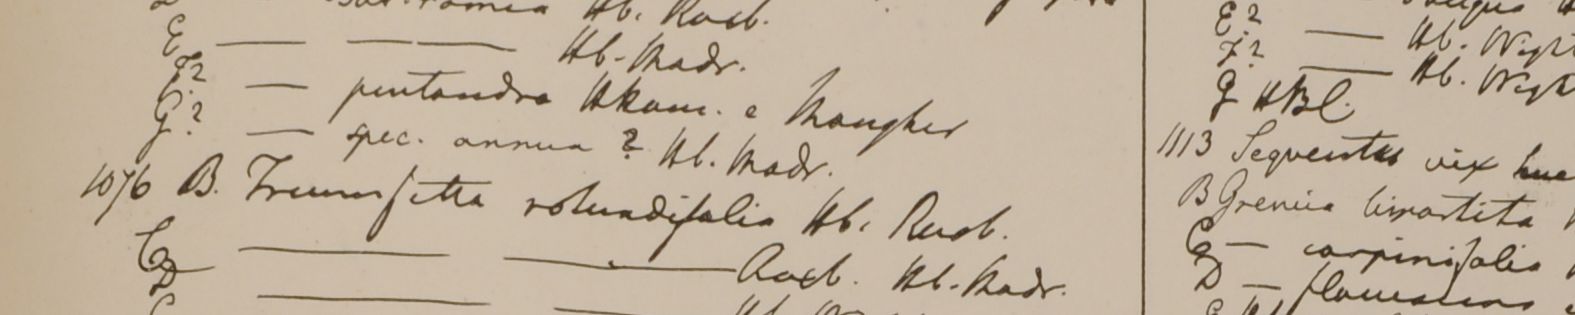 Hb. Roxb.
E — — — Hb. Madr.
F? — pentandra Hkam. e Maugher
G? — spec. annua? Hb. Madr.
1076 B. Triumfetta rotundifolia Hb. Roxb.
C — — Roxb. Hb. Madr.
D — —
E? — Hb. Wight
F? — Hb. Wight
G HBC.
1113 Sequentes vix huc
B Grewia bipartita
C — carpinifolia
D —